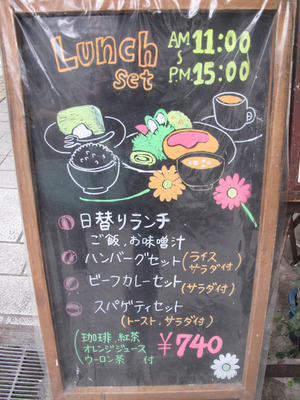 Lunch
Set
AM 11:00
S
P.M 15:00
日替りランチ
ご飯、お味噌汁
ハンバーグセット(ライス
サラダ付)
ビーフカレーセット(サラダ付)
スパゲティセット
(トースト、サラダ付)
珈琲、紅茶
オレンジジュース
ウーロン茶 付
¥740